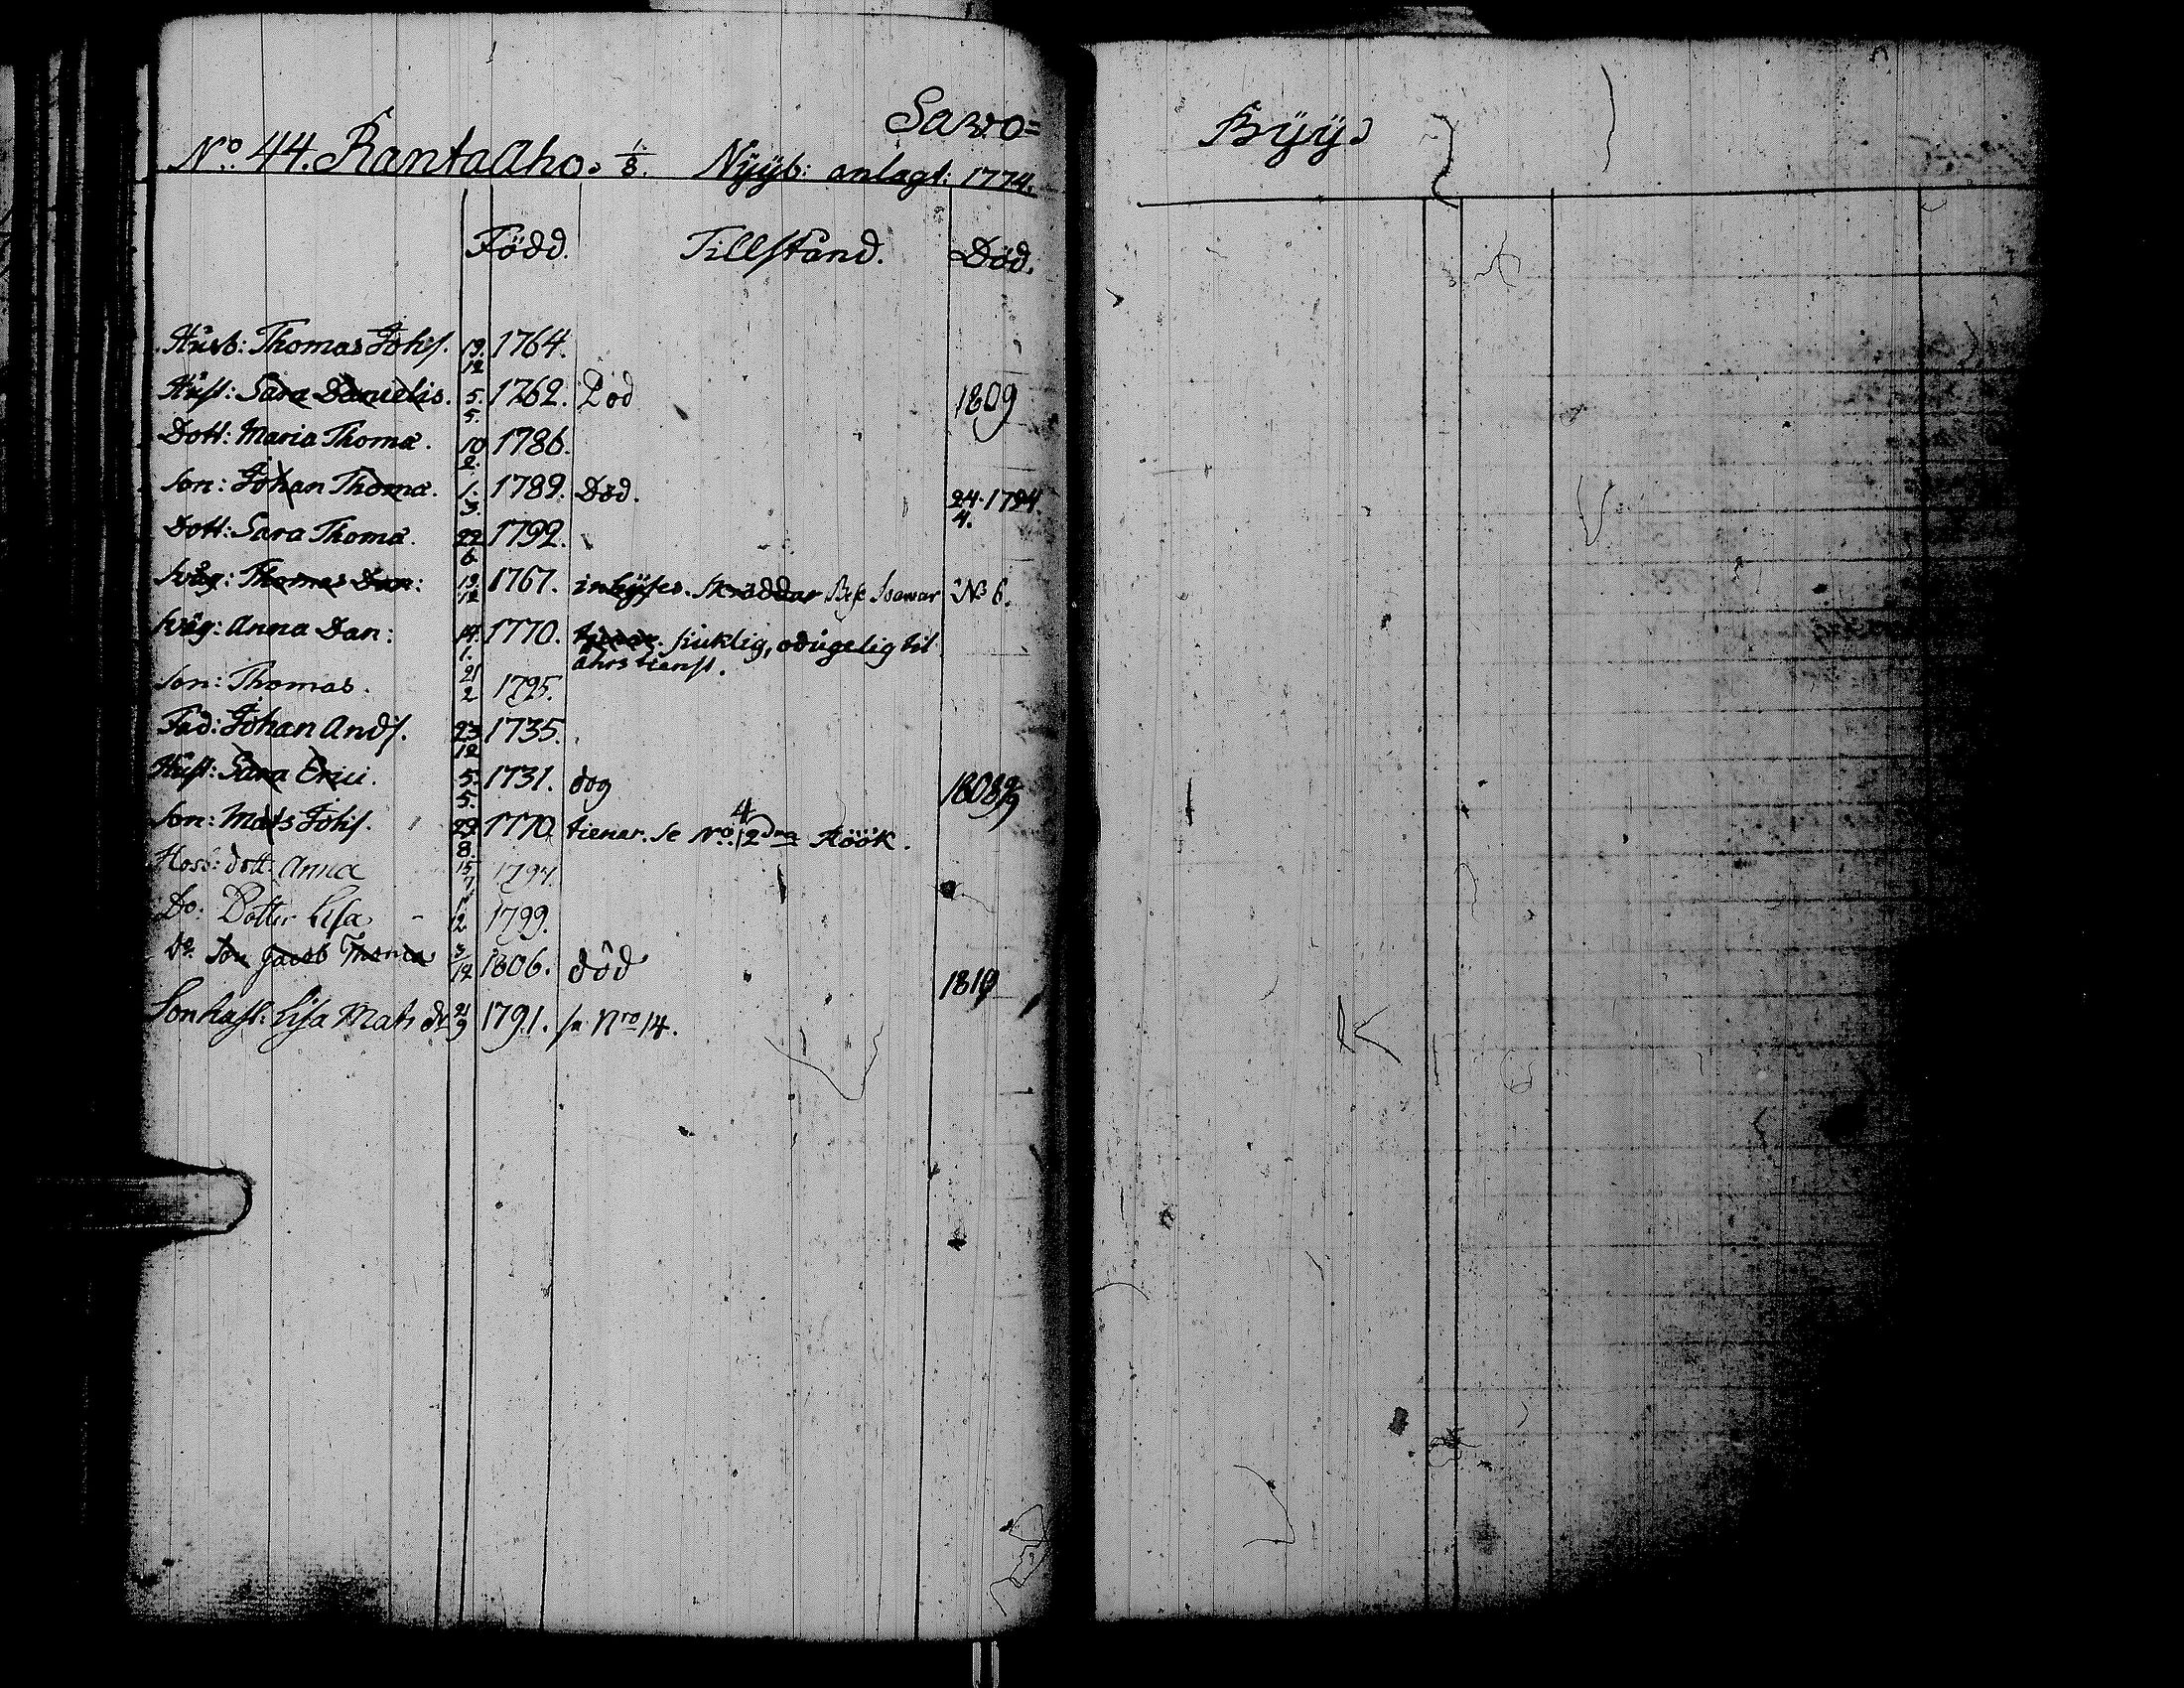 Savo= Byÿs
No: 44. Rantaaho. 1/8. Nyÿb: anlagt: 1774.
Född. Tillstånd. Död.
Husb: Thomas Johs. 19/12 1764.
Hust: Sara Danielis. 5/5. 1762. Död 1809
Dott: Maria Thomæ. 10/2. 1786.
Son: Johan Thomæ. 1/3. 1789. Död. 24/4. 1794.
Dott: Sara Thomæ. 22/6 1792.
Svåg: Thomas Dan: 19/12 1767. inhyses. Skräddar No 6.
Svåg: Anna Dan: 14/1. 1770. siuklig, odugelig til
åhrs tienst.
Son: Thomas. 21/2 1795.
Fad: Johan Ands. 23/12 1735.
Hust: Sara Erici. 5/5. 1731. dog
Son: Mats Johs. 29/8. 1770. tienar. Se No: 4 12 dra Höök.
Hosb: dott: Anna 15/7 1794.
Do: Dotter Lisa 1/12 1799.
Do. Son Jacob Thomæ 3/12 1806. död 1810
Sonhust: Lisa Mats dr 21/9 1791. se Nro 14.